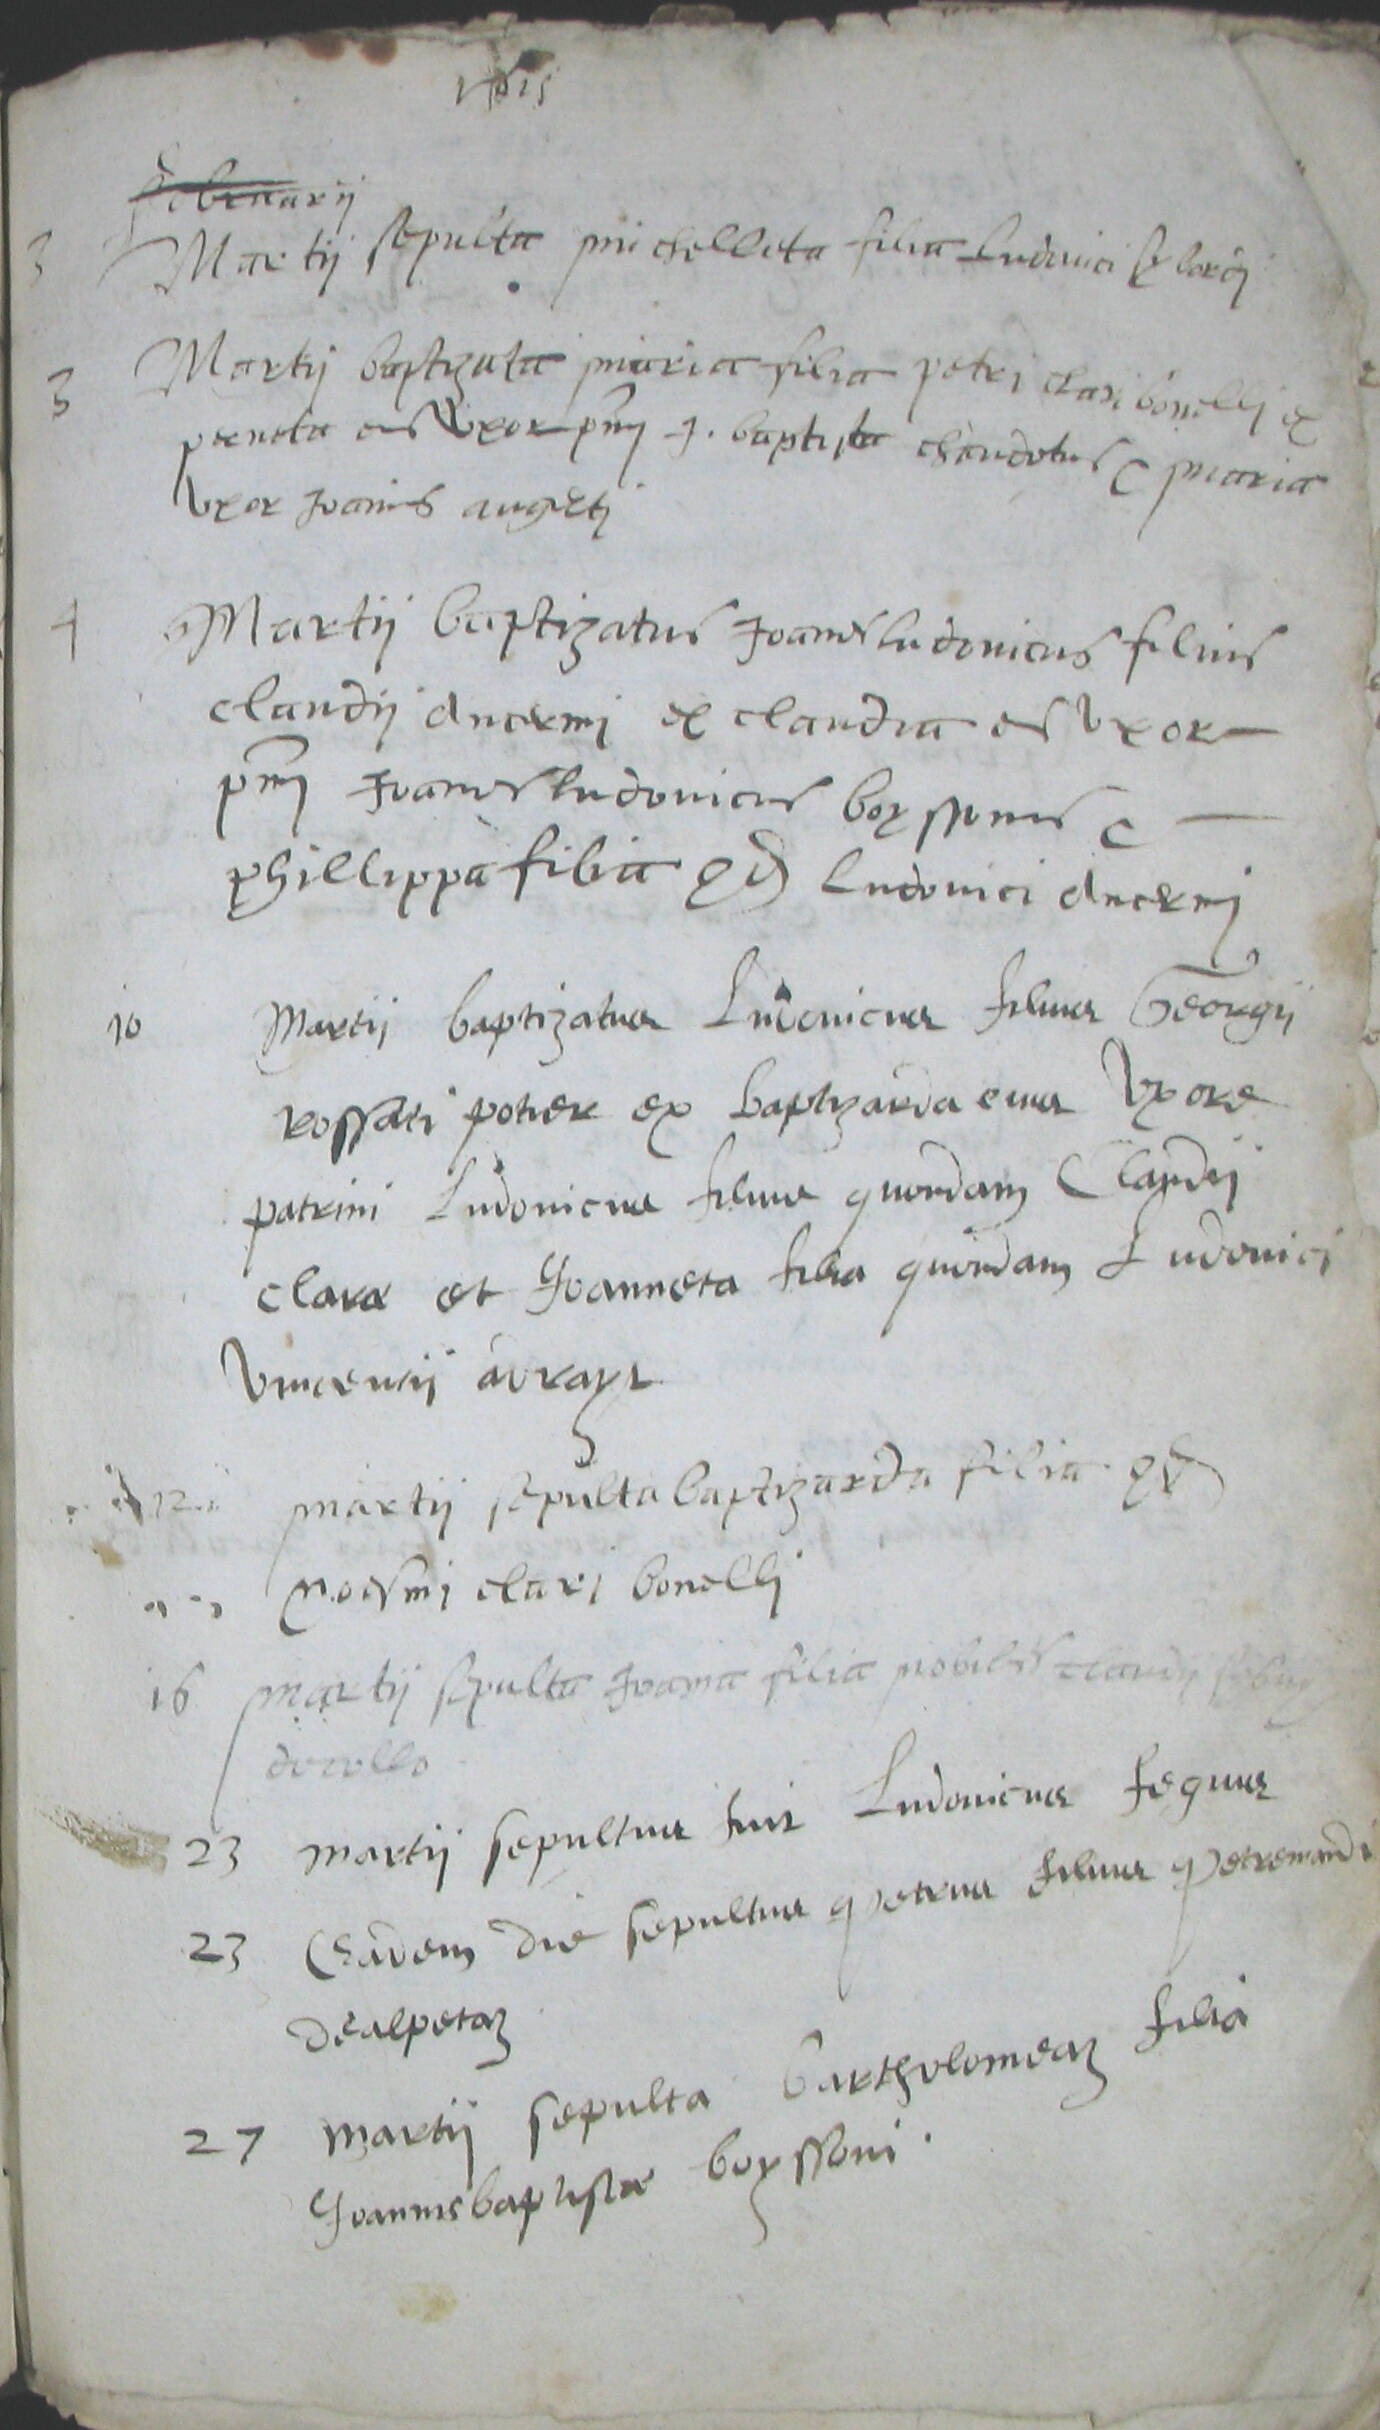 februarii
3 Martii sepulta michelleta filia Ludovici
3 Martii baptizata maria filia petri clari bonelli ex
perneta eius Uxor pmi J. baptista chaudetus & maria
Uxor Joanis augeti
4 Martii baptizatus Joanes ludovicus filius
claudii ducrmi ex claudia eius Uxor
pmi Joanes ludovicus boyssonus &
phillippa filia qd Ludovici ducrmi
10 Martii baptizatus Ludovicus filius Georgii
rossati potier ex baptizarda eius Uxore
patrini Ludovicus filius quondam Claudii
clare et Joanneta filia quondam Ludovici
Vincentii avrayz
12 martii sepulta baptizarda filia qd
clari bonelli
16 martii sepulta Joana filia nobilis claudii
decollo
23 martii sepultus fuit Ludovicus seguus
23 Eadem die sepultus petrus filius petremandi
dealpetaz
27 martii sepulta bartholomeaz filia
Joannis baptistae boyssoni.